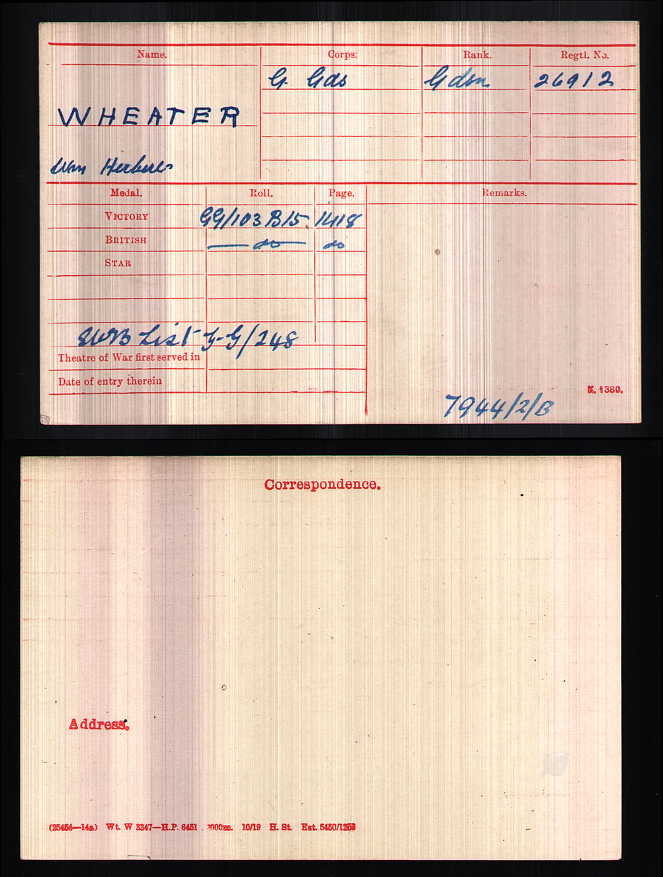 Name. Corps. Rank. Regtl. No.
G. Gds Gdsn 26912
WHEATER
Wm Herbert
Medal. Roll. Page. Remarks.
VICTORY GG/103 B15. 1418
BRITISH — do — do
STAR
SWB List G-G/248
Theatre of War first served in
Date of entry therein
7944/2/B
K. 1380.
Correspondence.
Address.
(25454—14a) Wt. W 3347—H.P. 6451 10/19 H. St. Est. 5450/1253